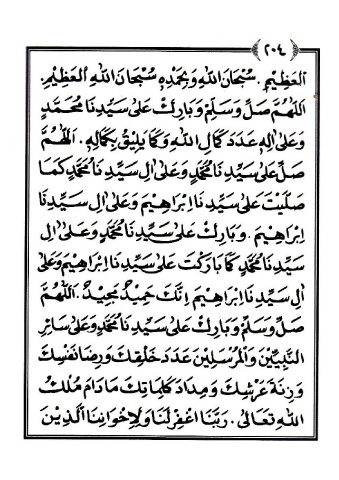 ﴿٢٠٤﴾
الْعَظِيْمِ. سُبْحَانَ اللهِ وَبِحَمْدِهِ سُبْحَانَ اللهِ الْعَظِيْمِ.
اَللّٰهُمَّ صَلِّ وَسَلِّمْ وَبَارِكْ عَلىٰ سَيِّدِنَا مُحَمَّدٍ
وَعَلىٰ اٰلِهِ عَدَدَ كَمَالِ اللهِ وَكَمَا يَلِيْقُ بِكَمَالِهِ. اَللّٰهُمَّ
صَلِّ عَلىٰ سَيِّدِنَا مُحَمَّدٍ وَعَلىٰ اٰلِ سَيِّدِنَا مُحَمَّدٍ كَمَا
صَلَّيْتَ عَلىٰ سَيِّدِنَا اِبْرَاهِيْمَ وَعَلىٰ اٰلِ سَيِّدِنَا
اِبْرَاهِيْمَ. وَبَارِكْ عَلىٰ سَيِّدِنَا مُحَمَّدٍ وَعَلىٰ اٰلِ
سَيِّدِنَا مُحَمَّدٍ كَمَا بَارَكْتَ عَلىٰ سَيِّدِنَا اِبْرَاهِيْمَ وَعَلىٰ
اٰلِ سَيِّدِنَا اِبْرَاهِيْمَ اِنَّكَ حَمِيْدٌ مَجِيْدٌ. اَللّٰهُمَّ
صَلِّ وَسَلِّمْ وَبَارِكْ عَلىٰ سَيِّدِنَا مُحَمَّدٍ وَعَلىٰ سَائِرِ
النَّبِيِّيْنَ وَالْمُرْسَلِيْنَ عَدَدَ خَلْقِكَ وَرِضَا نَفْسِكَ
وَزِنَةَ عَرْشِكَ وَمِدَادَ كَلِمَاتِكَ مَادَامَ مُلْكُ
اللهِ تَعَالىٰ. رَبَّنَا اغْفِرْ لَنَا وَلِاِخْوَانِنَا الَّذِيْنَ